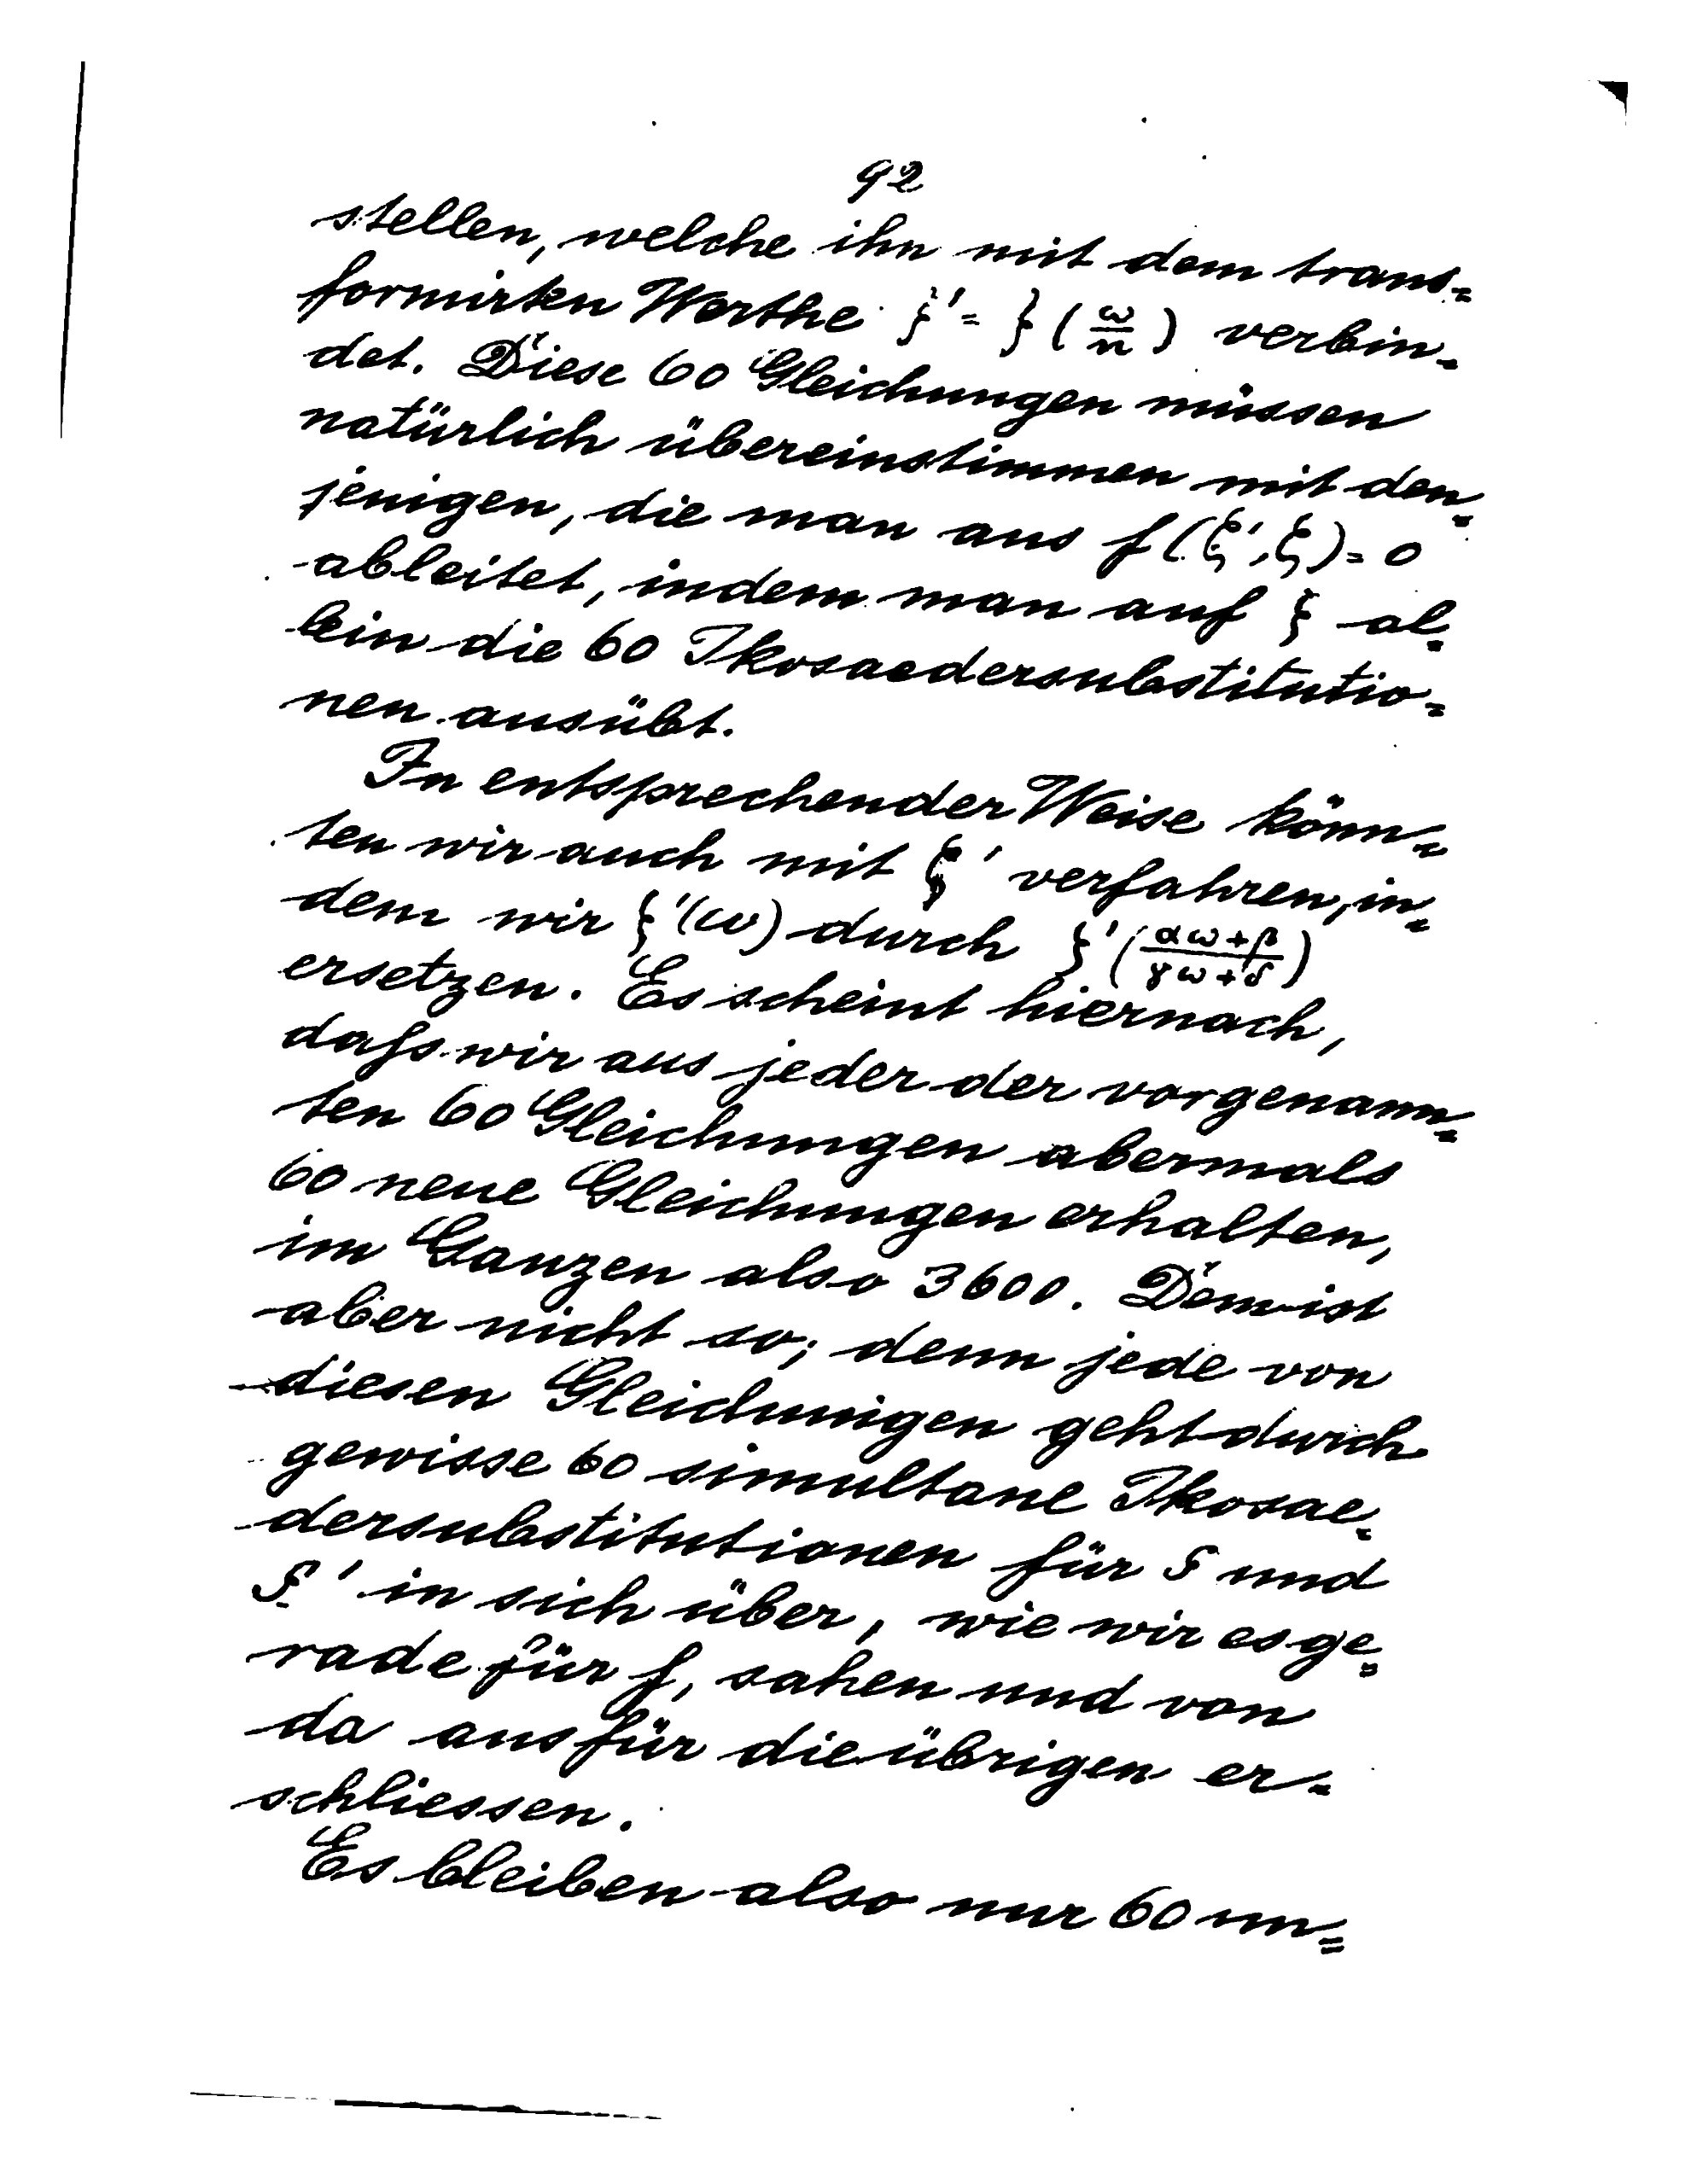 92
stellen, welche ihn mit dem trans=
formirten Werthe ξ' = ξ(ω/n) verbin=
det. Diese 60 Gleichungen müssen
natürlich übereinstimmen mit den=
jenigen, die man aus f(ξ', ξ) = 0
ableitet, indem man auf ξ al=
lein die 60 Ikosaedersubstitutio=
nen ausübt.
In entsprechender Weise könn=
ten wir auch mit ξ' verfahren, in=
dem wir ξ'(ω) durch ξ'((αω+β)/(γω+δ))
ersetzen. Es scheint hiernach,
dass wir aus jeder der vorgenann=
ten 60 Gleichungen abermals
60 neue Gleichungen erhalten,
im Ganzen also 3600. Dem ist
aber nicht so; denn jede von
diesen Gleichungen geht durch
gewisse 60 simultane Ikosae=
dersubstitutionen für ξ und
ξ' in sich über, wie wir es ge=
rade für f, sahen und von
da aus für die übrigen er=
schliessen.
Es bleiben also nur 60 un=